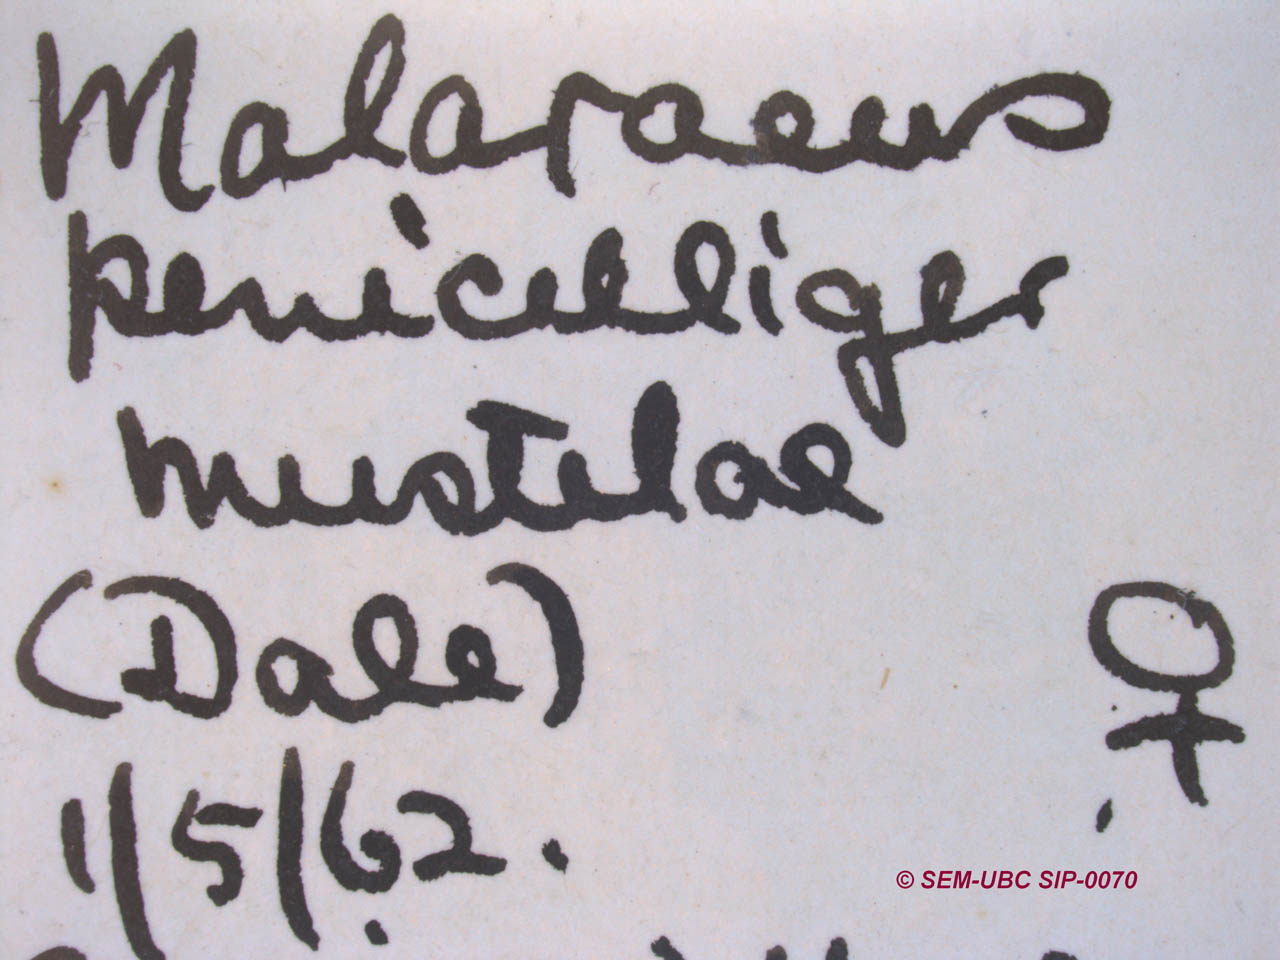 Malaraeus
penicilliger
mustelae
(Dale) ♀
1/5/62.
© SEM-UBC SIP-0070